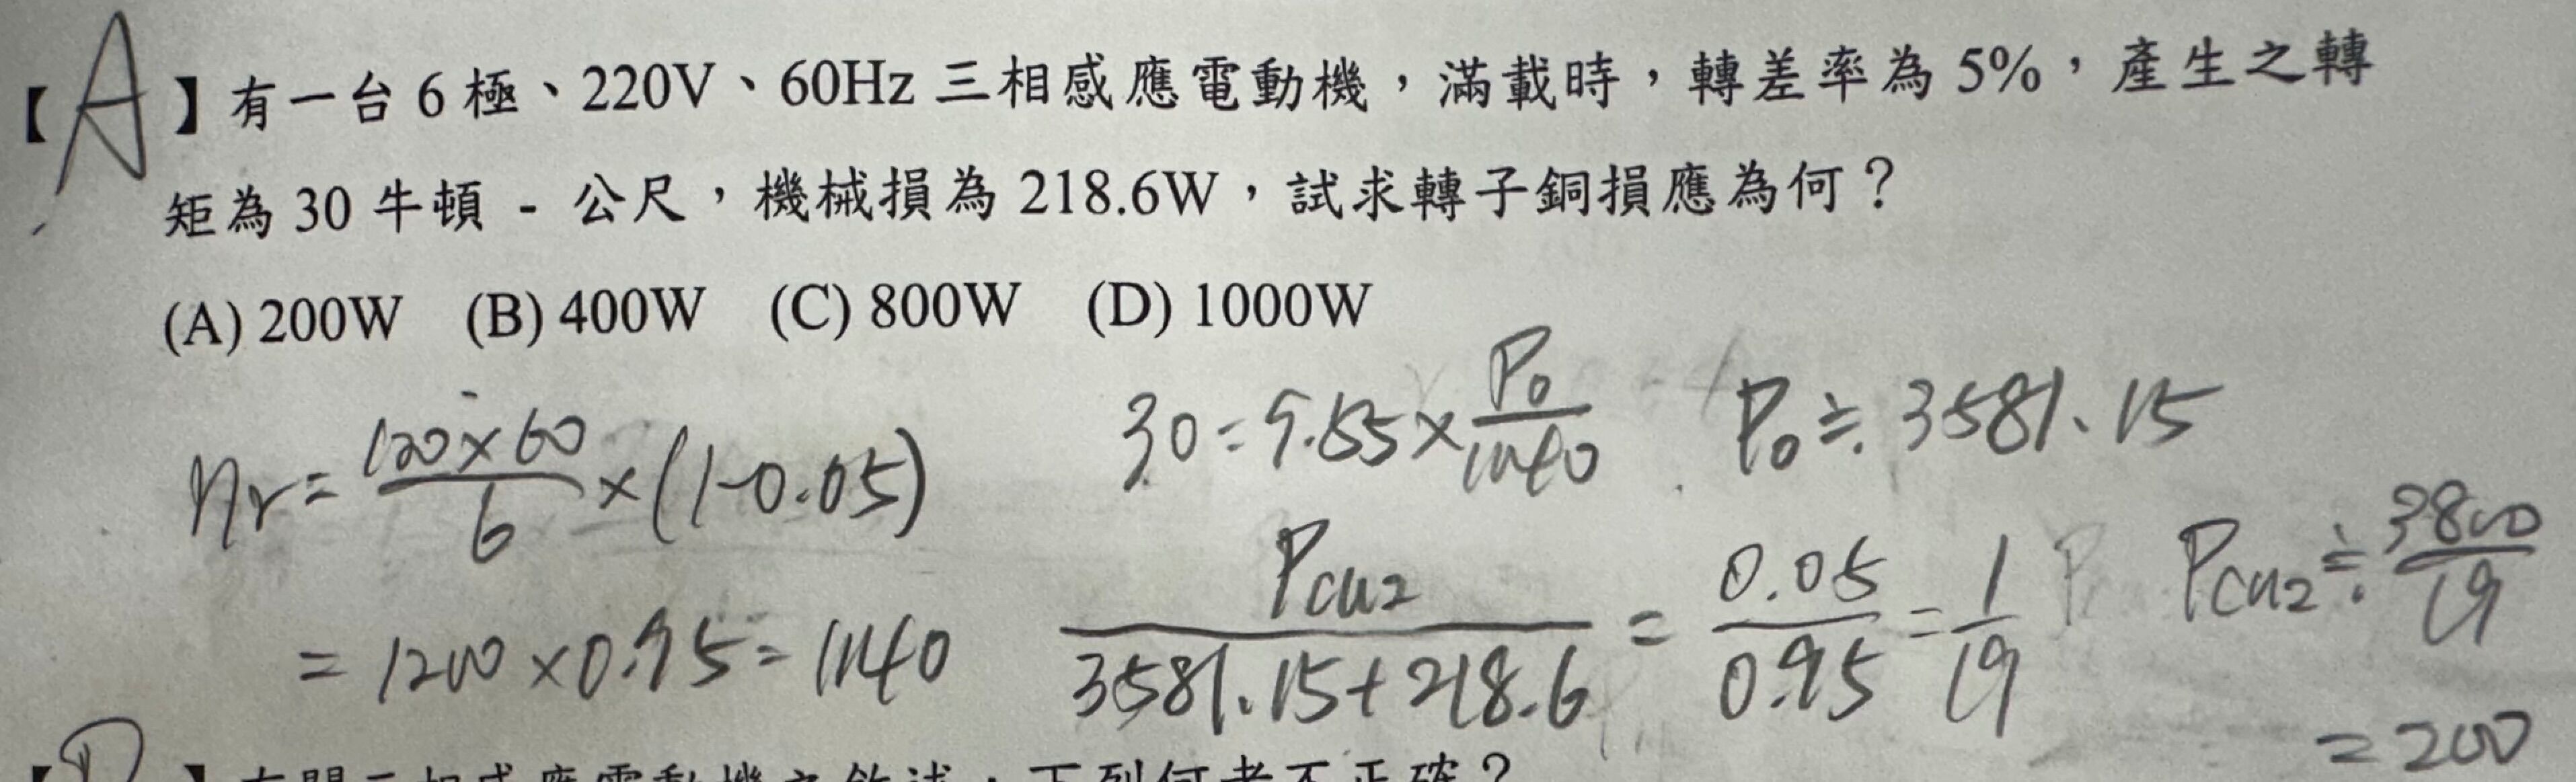 【A】有一台 6 極、220V、60Hz 三相感應電動機，滿載時，轉差率為 5%，產生之轉
矩為 30 牛頓 - 公尺，機械損為 218.6W，試求轉子銅損應為何？
(A) 200W (B) 400W (C) 800W (D) 1000W
nr = 120×60/6 × (1-0.05)
= 1200 × 0.95 = 1140
30 = 9.55 × Po/1140 Po ≒ 3581.15
Pcu2/3581.15+218.6 = 0.05/0.95 = 1/19 Pcu2 ≒ 3800/19
= 200
【D】有關三相感應電動機之敘述，下列何者不正確？